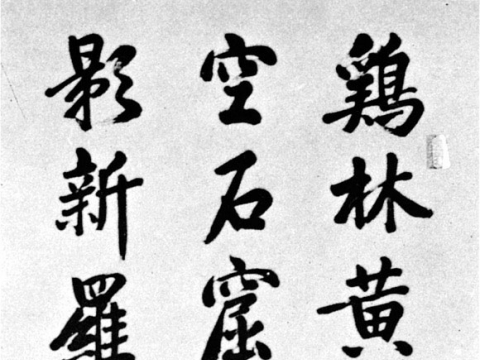 鷄林黄
空石窟
影新羅